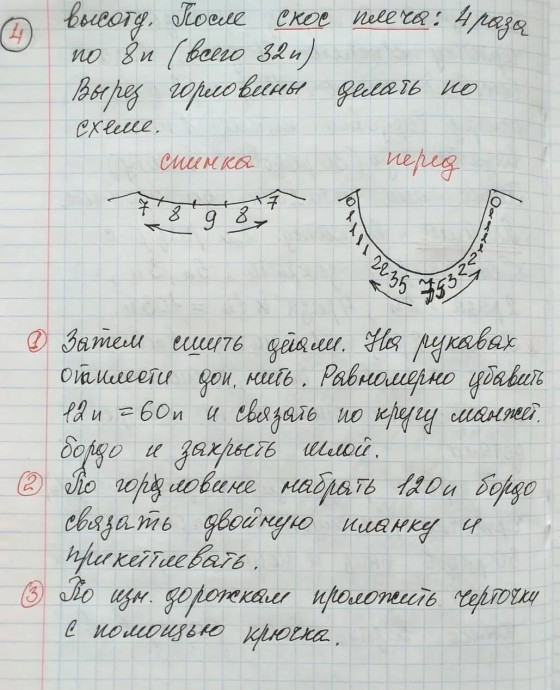 4
высоту. После скос плеча: 4 раза
по 8п (всего 32п)
Вырез горловины делать по
схеме.
спинка перед
7 8 9 8 7
0 1 1 1 1 2 2 3 5 5 3 2 2 1 1 1 1 0
① Затем сшить детали. На рукавах
отплести доп, нить. Равномерно убавить
12п = 60п и связать по кругу манжет.
бордо и закрыть иглой.
② По горловине набрать 120п бордо
связать двойную планку и
прикеттлевать.
③ По изн. дорожкам проложить черточки
с помощью крючка.